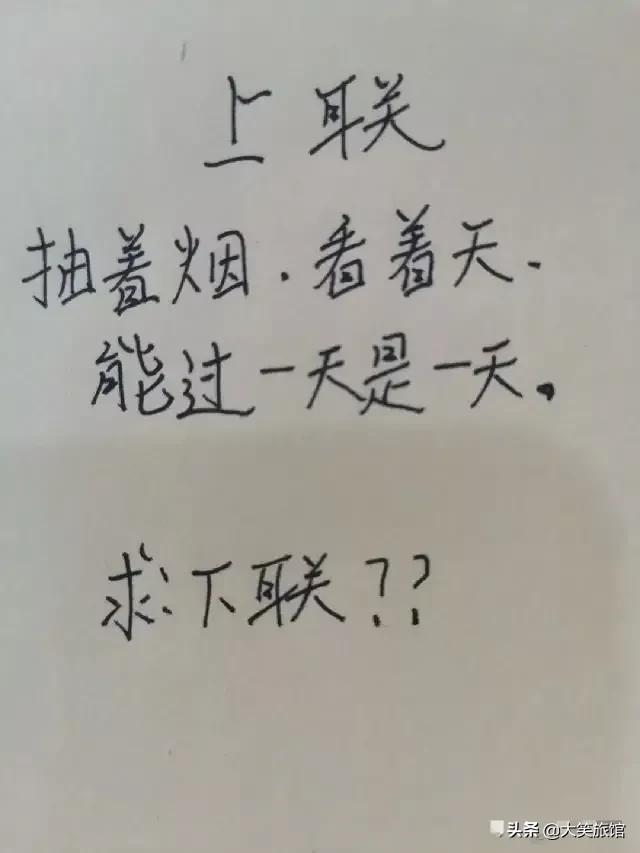 上联
抽着烟.看着天.
能过一天是一天。
求下联??
头条 @大笑旅馆